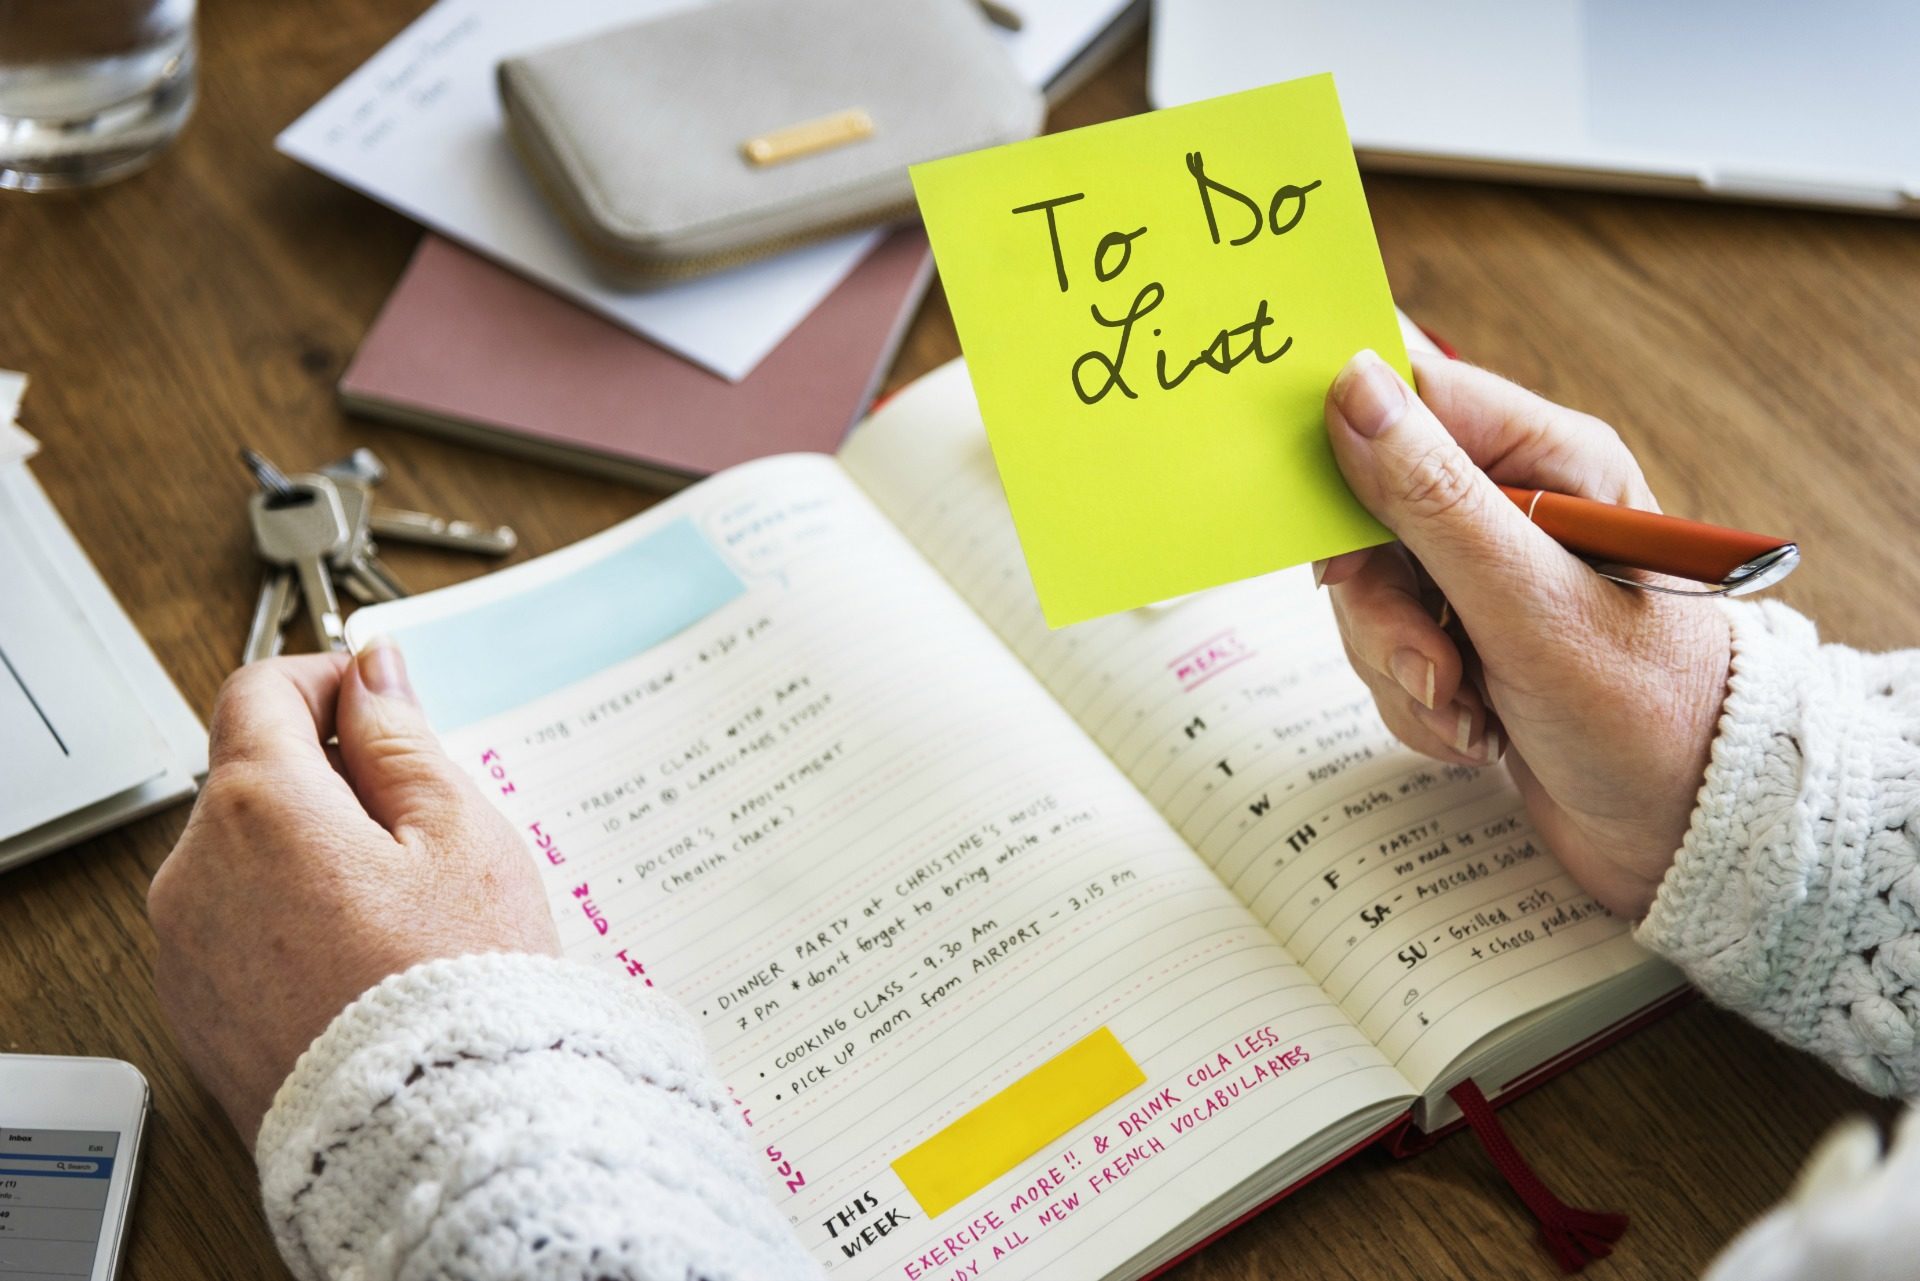 To Do
List
JOB INTERVIEW - 4:30 PM
MON
• FRENCH CLASS WITH AMY
10 AM @ LANGUAGES STUDIO
TUE
• DOCTOR'S APPOINTMENT
(health check)
WED
• DINNER PARTY at CHRISTINE'S HOUSE
7 PM * don't forget to bring white wine!
• COOKING CLASS - 9.30 AM
• PICK UP mom from AIRPORT - 3.15 PM
SUN
THIS
WEEK
EXERCISE MORE!! & DRINK COLA LESS
ALL NEW FRENCH VOCABULARIES
MEALS
M -
T -
W - Roasted
TH - Pasta with
F - PARTY!!
no need to cook
SA - Avocado salad
SU - Grilled Fish
+ choco pudding
Inbox
Edit
Search